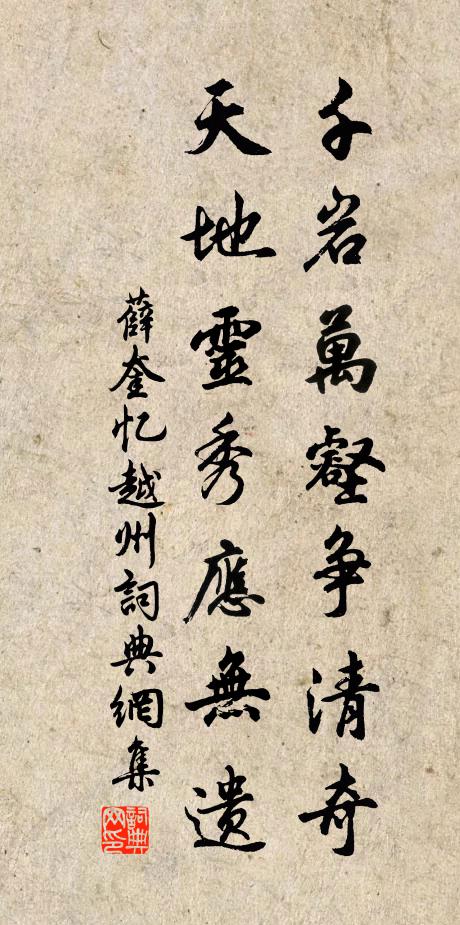 千岩萬壑争清奇
天地靈秀應無遺
薛奎忆越州詞典網集
詞典网印